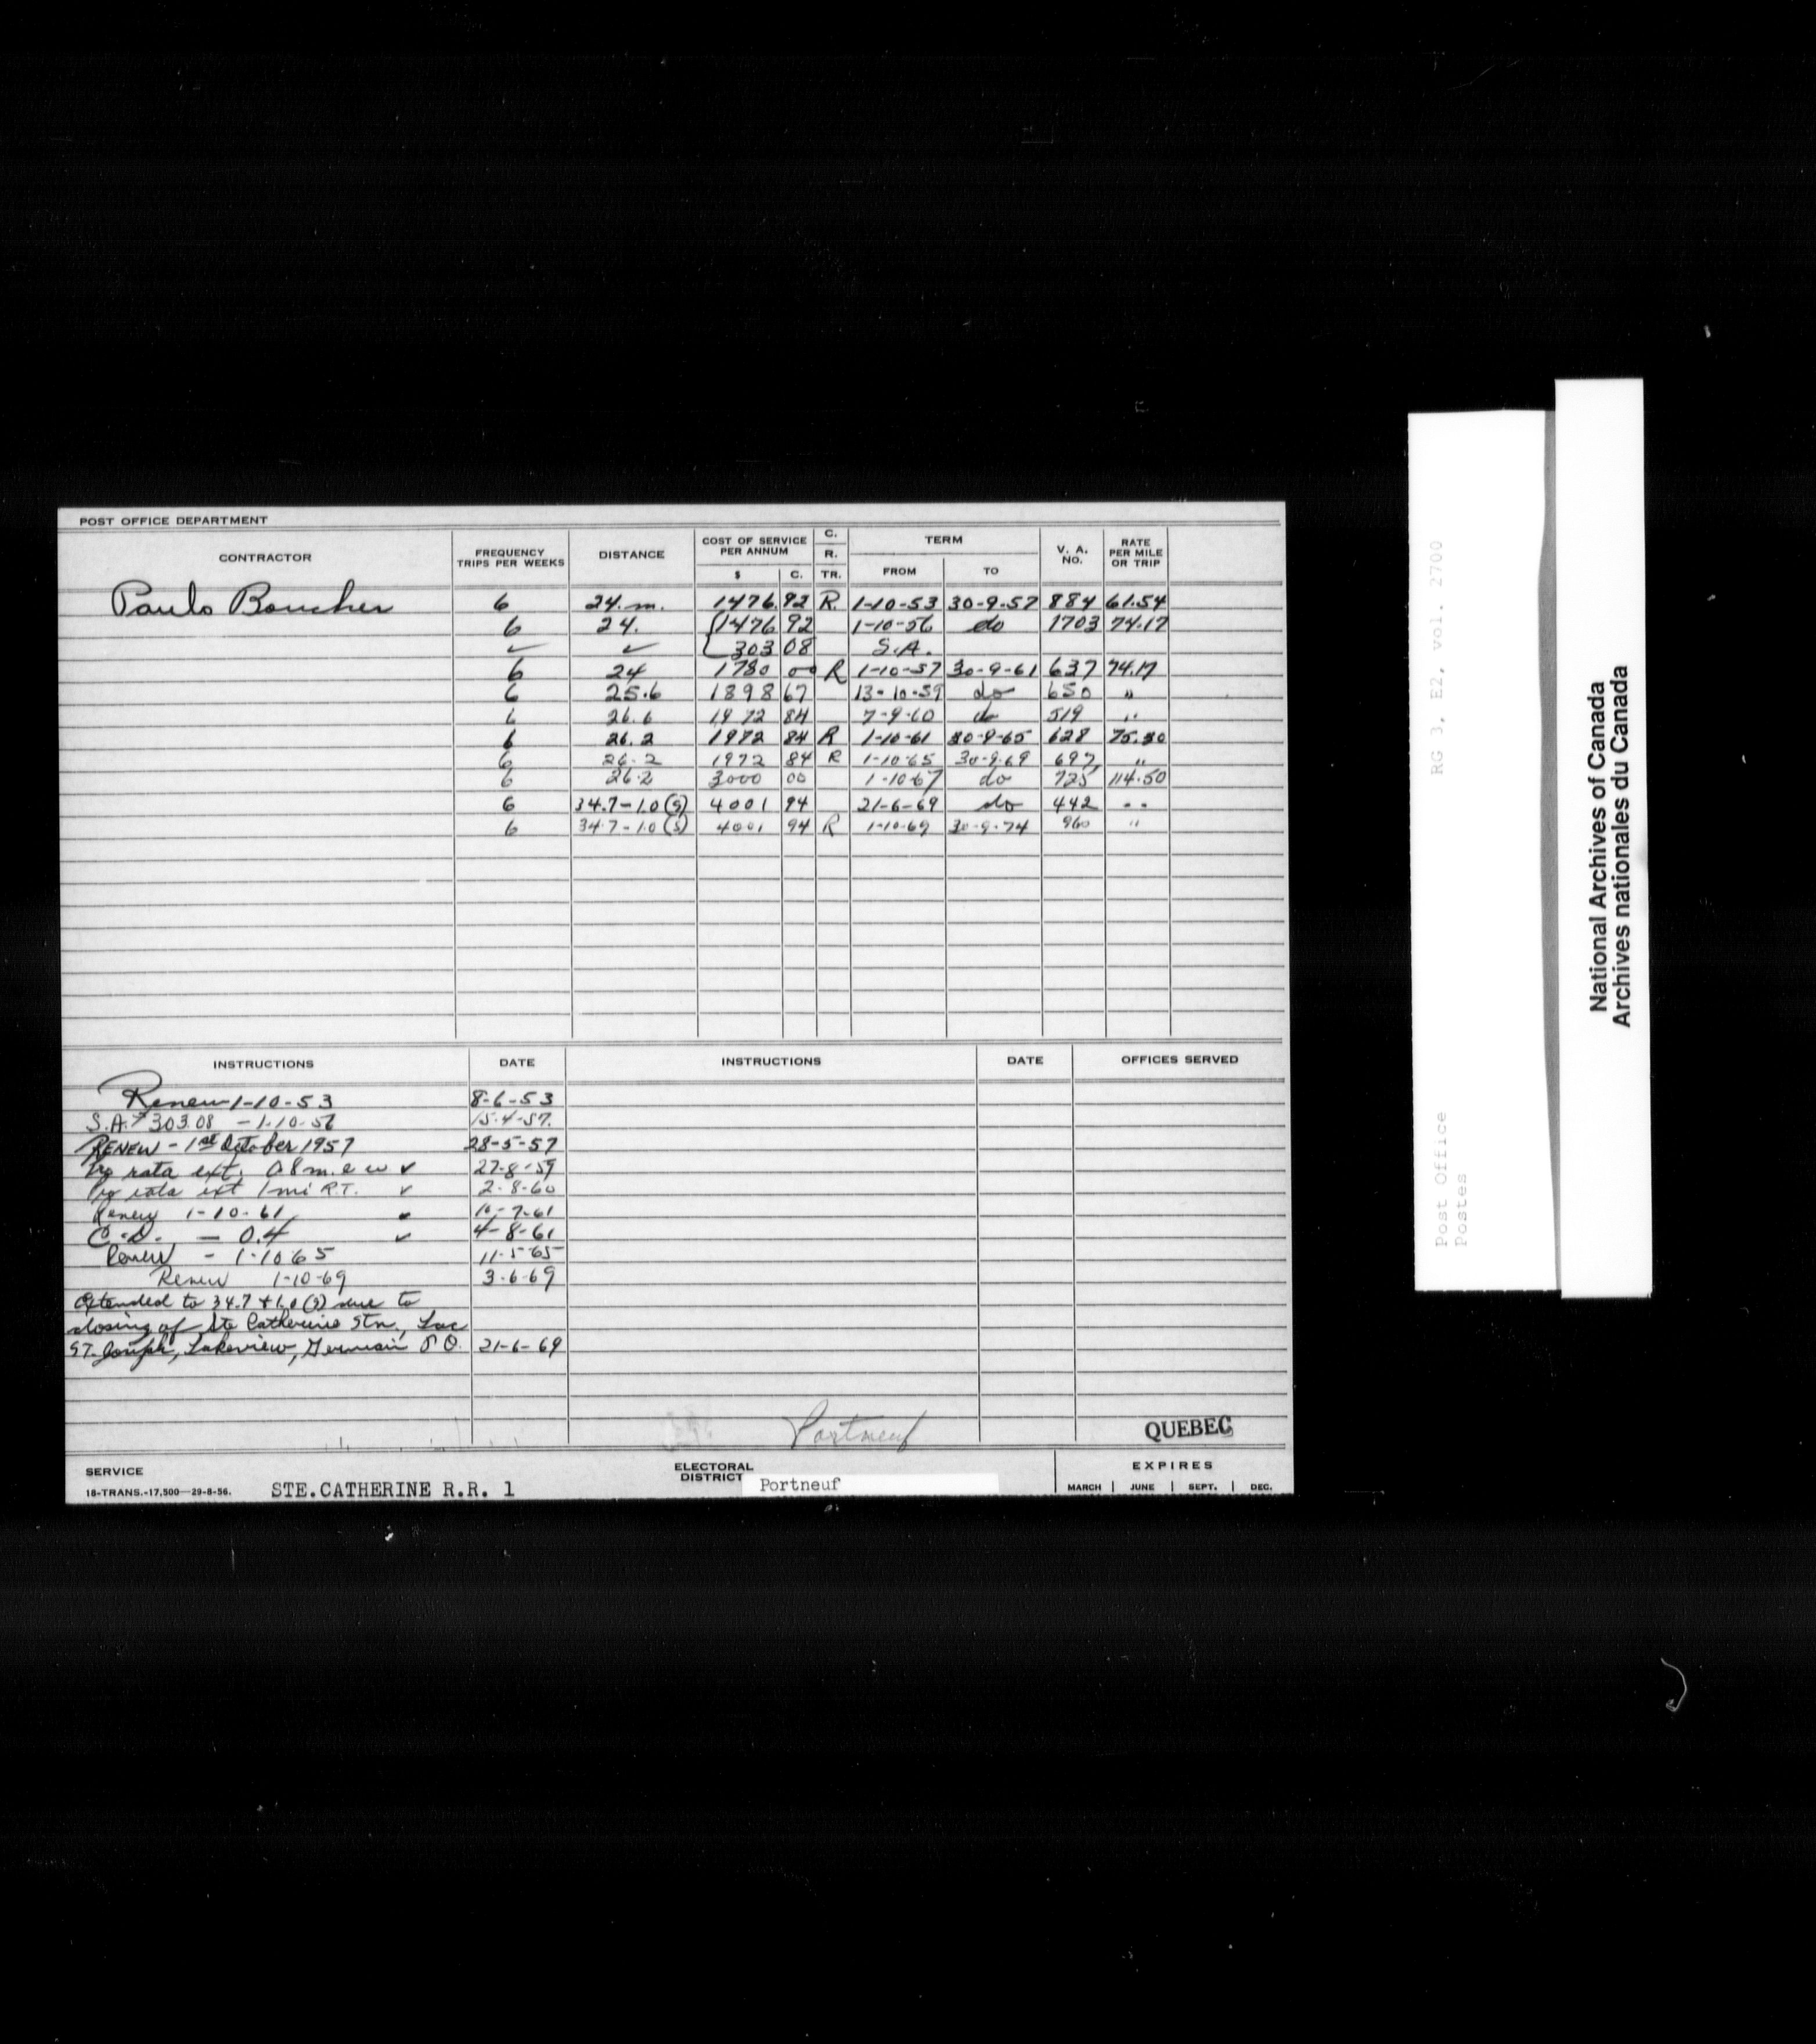 POST OFFICE DEPARTMENT
CONTRACTOR FREQUENCY TRIPS PER WEEKS DISTANCE COST OF SERVICE PER ANNUM $ C. C. R. TR. TERM FROM TO V. A. NO. RATE PER MILE OR TRIP
Paulo Boucher 6 24.m. 1476.92 R. 1-10-53 30-9-57 884 61.54
6 24. 1476 92 1-10-56 do 1703 74.17
✓ ✓ 303 08 S.A.
6 24 1780 00 R 1-10-57 30-9-61 637 74.17
6 25.6 1898 67 13-10-59 do 650 "
6 26.6 1972 84 7-9-60 do 519 "
6 26.2 1972 84 R 1-10-61 30-9-65 628 75.30
6 26.2 1972 84 R 1-10-65 30-9-69 697 "
6 26.2 3000 00 1-10-67 do 725 114.50
6 34.7-1.0(s) 4001 94 21-6-69 do 442 "
6 34.7-1.0(s) 4001 94 R 1-10-69 30-9-74 960 "
INSTRUCTIONS DATE INSTRUCTIONS DATE OFFICES SERVED
Renew 1-10-53 8-6-53
S.A. $303.08 - 1-10-56 15-4-57.
RENEW - 1st October 1957 28-5-57
Pro rata ext. 0.8 m. e w ✓ 27-8-59
Pro rata ext 1 mi R.T. ✓ 2-8-60
Renew 1-10-61 10-7-61
C.D. - 0.4 ✓ 4-8-61
Renew - 1-10-65 11-5-65
Renew 1-10-69 3-6-69
Extended to 34.7 + 1.0 (s) due to
closing of Ste Catherine Stn, Lac
ST. Joseph, Lakeview, Germain P.O. 21-6-69
Portneuf
QUEBEC
SERVICE ELECTORAL DISTRICT Portneuf EXPIRES
18-TRANS.-17,500—29-8-56. STE.CATHERINE R.R. 1 MARCH JUNE SEPT. DEC.
RG 3, E2, vol. 2700
Post Office
Postes
National Archives of Canada
Archives nationales du Canada